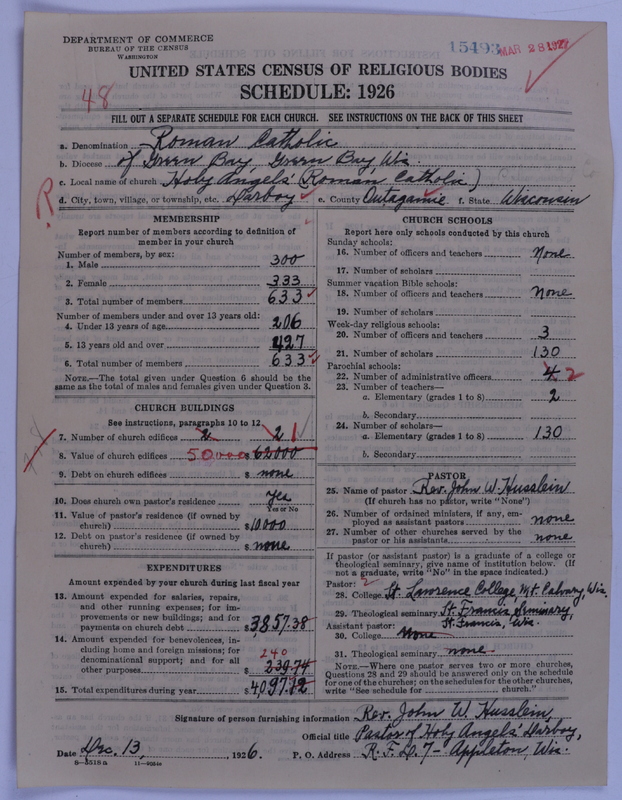 DEPARTMENT OF COMMERCE
BUREAU OF THE CENSUS
WASHINGTON
15493 MAR 28 1927
48
UNITED STATES CENSUS OF RELIGIOUS BODIES
SCHEDULE: 1926
FILL OUT A SEPARATE SCHEDULE FOR EACH CHURCH. SEE INSTRUCTIONS ON THE BACK OF THIS SHEET
a. Denomination Roman Catholic
b. Diocese of Green Bay, Green Bay Wis.
c. Local name of church Holy Angels' (Roman Catholic)
R
d. City, town, village, or township, etc. Darboy e. County Outagamie f. State Wisconsin
MEMBERSHIP
Report number of members according to definition of
member in your church
Number of members, by sex:
1. Male 300
2. Female 333
3. Total number of members 633
Number of members under and over 13 years old:
4. Under 13 years of age 206
5. 13 years old and over 427
6. Total number of members 633
NOTE.—The total given under Question 6 should be the
same as the total of males and females given under Question 3.
CHURCH BUILDINGS
See instructions, paragraphs 10 to 12
7. Number of church edifices 2 2 1
8. Value of church edifices 50000 $ 62000
9. Debt on church edifices $ none
10. Does church own pastor's residence Yes
Yes or No
11. Value of pastor's residence (if owned by
church) $ 10000
12. Debt on pastor's residence (if owned by
church) $ none
EXPENDITURES
Amount expended by your church during last fiscal year
13. Amount expended for salaries, repairs,
and other running expenses; for im-
provements or new buildings; and for
payments on church debt $ 3857.38
14. Amount expended for benevolences, in-
cluding home and foreign missions; for
denominational support; and for all
240
other purposes $ 239.74
15. Total expenditures during year $ 4097.12
CHURCH SCHOOLS
Report here only schools conducted by this church
Sunday schools:
16. Number of officers and teachers None
17. Number of scholars
Summer vacation Bible schools:
18. Number of officers and teachers None
19. Number of scholars
Week-day religious schools:
20. Number of officers and teachers 3
21. Number of scholars 130
Parochial schools:
22. Number of administrative officers 4 2
23. Number of teachers—
a. Elementary (grades 1 to 8) 2
b. Secondary
24. Number of scholars—
a. Elementary (grades 1 to 8) 130
b. Secondary
PASTOR
25. Name of pastor Rev. John W. Husslein
(If church has no pastor, write "None")
26. Number of ordained ministers, if any, em-
ployed as assistant pastors none
27. Number of other churches served by the
pastor or his assistants none
If pastor (or assistant pastor) is a graduate of a college or
theological seminary, give name of institution below. (If
not a graduate, write "No" in the space indicated.)
Pastor: 2
28. College St. Lawrence College, Mt. Calvary, Wis.
29. Theological seminary St. Francis Seminary,
Assistant pastor: St. Francis, Wis.
30. College None
31. Theological seminary none
NOTE.—Where one pastor serves two or more churches,
Questions 28 and 29 should be answered only on the schedule
for one of the churches; on the schedules for the other churches,
write "See schedule for church."
Signature of person furnishing information Rev. John W. Husslein
Official title Pastor of Holy Angels' Darboy,
Date Dec. 13, 1926. P. O. Address R.F.D. 7 - Appleton, Wis.
8—5518a